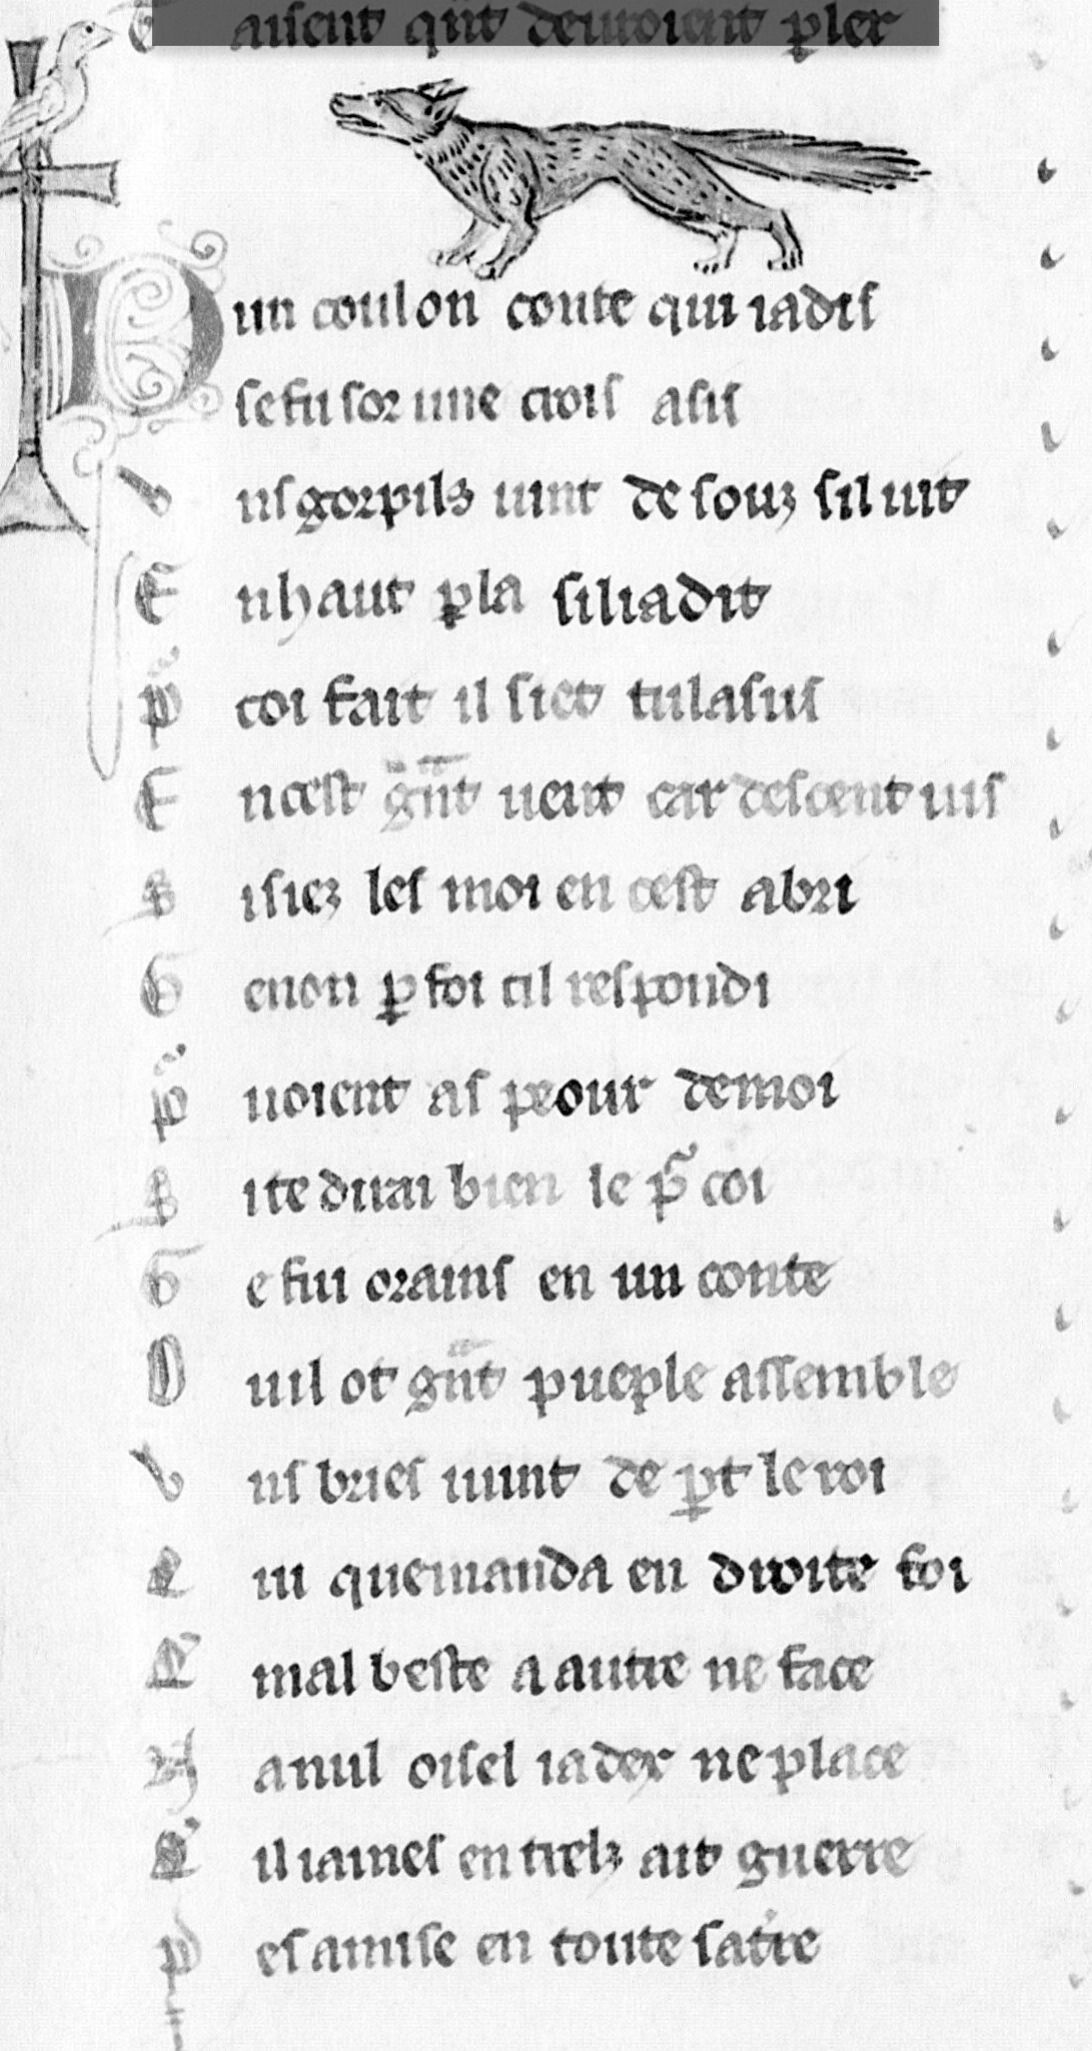 aisent qñt deuroient ꝑler
D un coulon conte qui iadis
se fu sor une crois asis
V us gorpilz uint de souz sil uit
E n haut ꝑ la si li a dit
P̃ coi fait il siet tu lasus
E n cest gñt uent car descent ius
S i siez les moi en cest abri
G e non ꝑ foi cil respondi
P̃ uoient as peour de moi
S i te dirai bien le p̃ coi
G e fui orains en un conte
O u il ot gñt pueple assemble
V us bries uiint de ꝑt le roi
L iu que manda en droite foi
C mal beste a autre ne face
N a nul oisel ia dex ne place
C il iames entrelz ait guerre
P es a mise en toute sa tr̃e